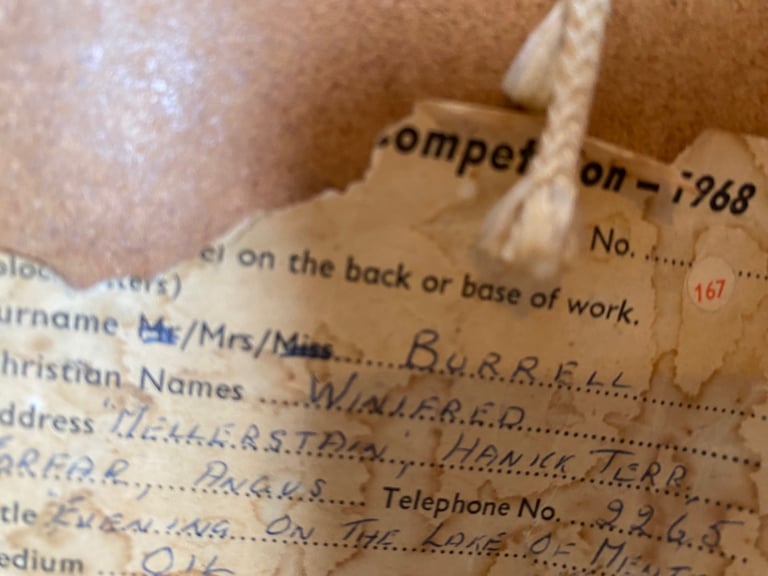 ompet on - 1968
No. ........
167
el on the back or base of work.
ters)
urname Mr/Mrs/Miss.... BURRELL
hristian Names .... WINIFRED
ddress "MELLERSTAIN", HANICK TERR,
ORFAR, ANGUS .... Telephone No. 2265
tle "EVENING ON THE LAKE OF MENT
edium .... OIL